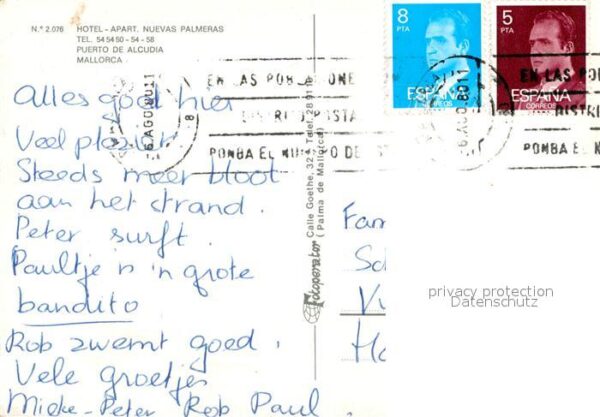 N.º 2.076 HOTEL - APART. NUEVAS PALMERAS
TEL. 54 54 50 - 54 - 58
PUERTO DE ALCUDIA
MALLORCA
8
PTA
ESPAÑA
CORREOS
5
PTA
ESPAÑA
CORREOS
EN LAS POBLACIONE
DISTRITO POSTA
PONGA EL NUMERO DE
EN LAS PO
DISTRI
PONGA EL N
Alles goed hier
Veel plezier
Steeds meer bloot
aan het strand.
Peter surft.
Paultje is 'n grote
bandito
Rob zwemt goed.
Vele groetjes
Mieke - Peter Rob Paul.
Fotoperator
Calle Goethe, 32
(Palma de Mallorca)
Fam
Sc
V
Ho
privacy protection
Datenschutz